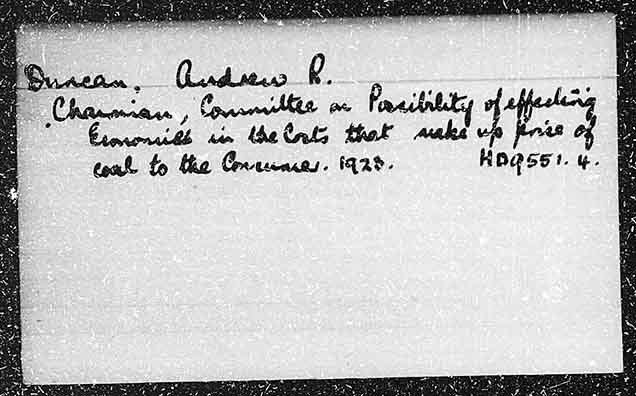 Duncan, Andrew R.
Chairman, Committee on Possibility of effecting
Economies in the Costs that make up price of
coal to the Consumer. 1923. HD9551.4.